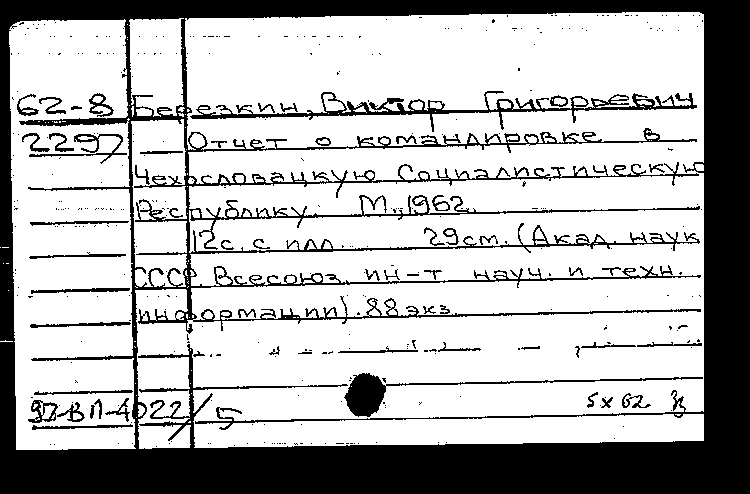 62-8 Березкин, Виктор Григорьевич
2297 Отчет о командировке в
Чехословацкую Социалистическую
Республику. М., 1962.
12с. с илл. 29см. (Акад. наук
СССР. Всесоюз. ин-т науч. и техн.
информации). 88 экз.
5 x 62
ВП-4022/5